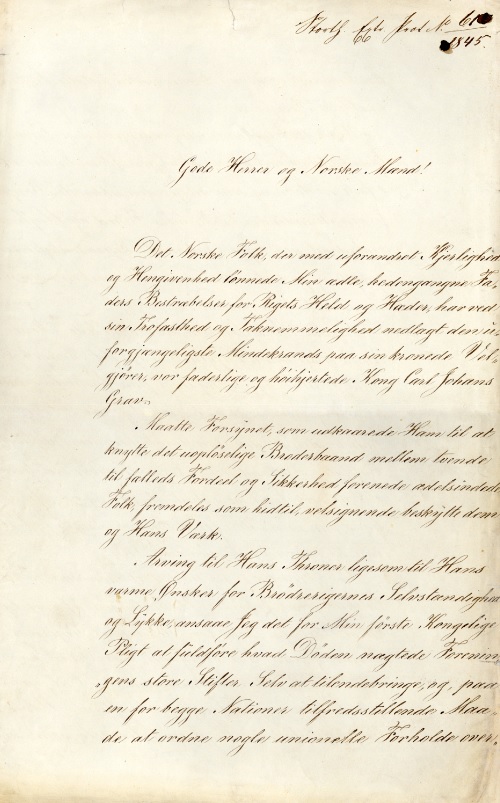 Storth. Exp. Prot No 61
1845.
Gode Herrer og Norske Mænd!
Det Norske Folk, der med uforandret Kjerlighed
og Hengivenhed lønnede Min ædle, hedengangne Fa-
ders Bestræbelser for Rigets Held og Hæder, har ved
sin Trofasthed og Taknemmelighed nedlagt den u-
forgjængeligste Mindekrands paa sin kronede Vel-
gjører, vor faderlige og høihjertede Kong Carl Johans
Grav.
Maatte Forsynet, som udkaarede Ham til at
knytte det uopløselige Broderbaand mellem tvende
til fælleds Fordeel og Sikkerhed forenede ædelsindede
Folk, fremdeles som hidtil, velsignende beskytte dem
og Hans Værk.
Arving til Hans Throner ligesom til Hans
varme Ønsker for Brödrerigernes Selvstændighed
og Lykke, ansaae Jeg det for Min første Kongelige
Pligt at fuldføre hvad Döden nægtede Forenin-
gens store Stifter Selv at tilendebringe, og, paa
en for begge Nationer tilfredsstillende Maa-
de at ordne nogle unionelle Forholde over-